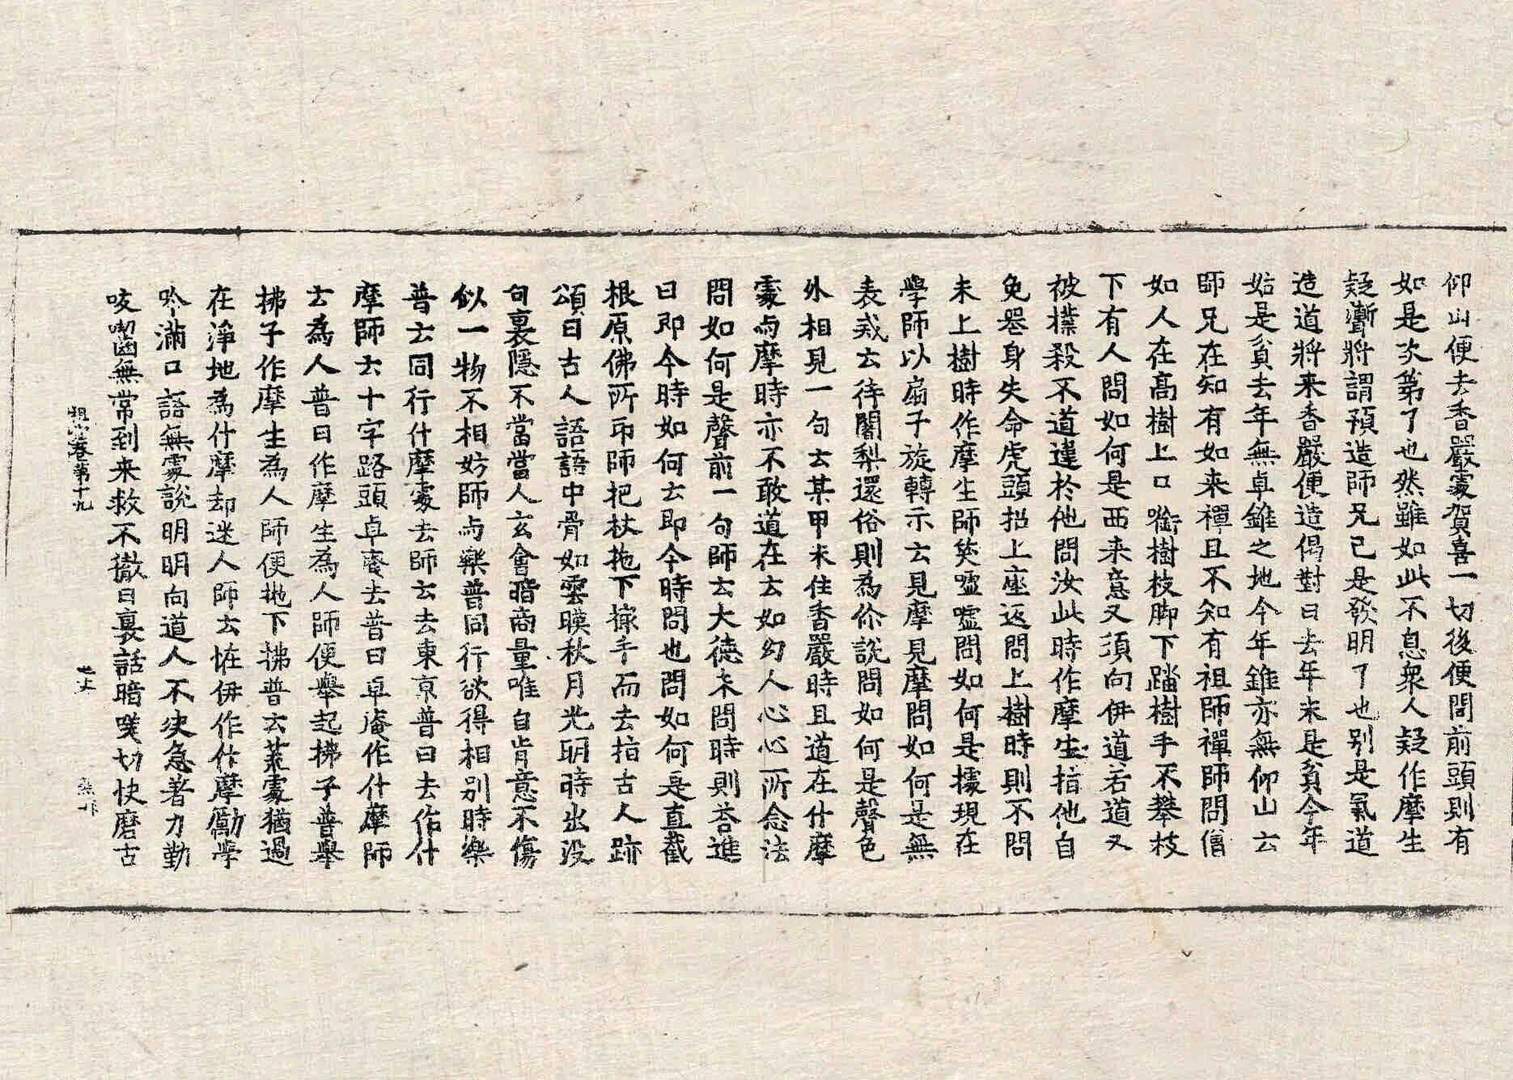 仰山便去香嚴處賀喜一切後便問前頭則有
如是次第了也然雖如此不息衆人疑作摩生
疑濟將謂預造師兄已是發明了也別是氣道
造道將來香嚴便造偈對曰去年未是貧今年
始是貧去年無卓錐之地今年錐亦無仰山云
師兄在知有如来禪且不知有祖師禪師問僧
如人在高樹上口㘅樹枝脚下踏樹手不攀枝
下有人問如何是西来意又須向伊道若道又
被撲殺不道違於他問汝此時作摩生指他自
免喪身失命虎頭招上座返問上樹時則不問
未上樹時作摩生師笑噓噓問如何是據現在
學師以扇子旋轉示云見摩見摩問如何是無
表戒云待闍梨還俗則為你說問如何是聲色
外相見一句云某甲未住香嚴時且道在什摩
處与摩時亦不敢道在云如幻人心心所念法
問如何是聲前一句師云大德未問時則荅進
曰即今時如何云即今時問也問如何是直截
根原佛所印師把杖抛下撩手而去指古人跡
頌曰古人語語中骨如雲暎秋月光明時出没
句裏隱不當當人玄會暗商量唯自肯意不傷
似一物不相妨師与樂普同行欲得相別時樂
普云同行什摩處去師云去東京普曰去作什
摩師云十字路頭卓菴去普曰卓菴作什摩師
云為人普曰作摩生為人師便舉起拂子普舉
拂子作摩生為人師便抛下拂普云荒處猶過
在淨地為什摩却迷人師云恠伊作什摩勵學
吟滿口語無處說明明向道人不決急著力勤
咬囓無常到来救不徹日裏話暗嗟切快磨古
祖堂卷第十九